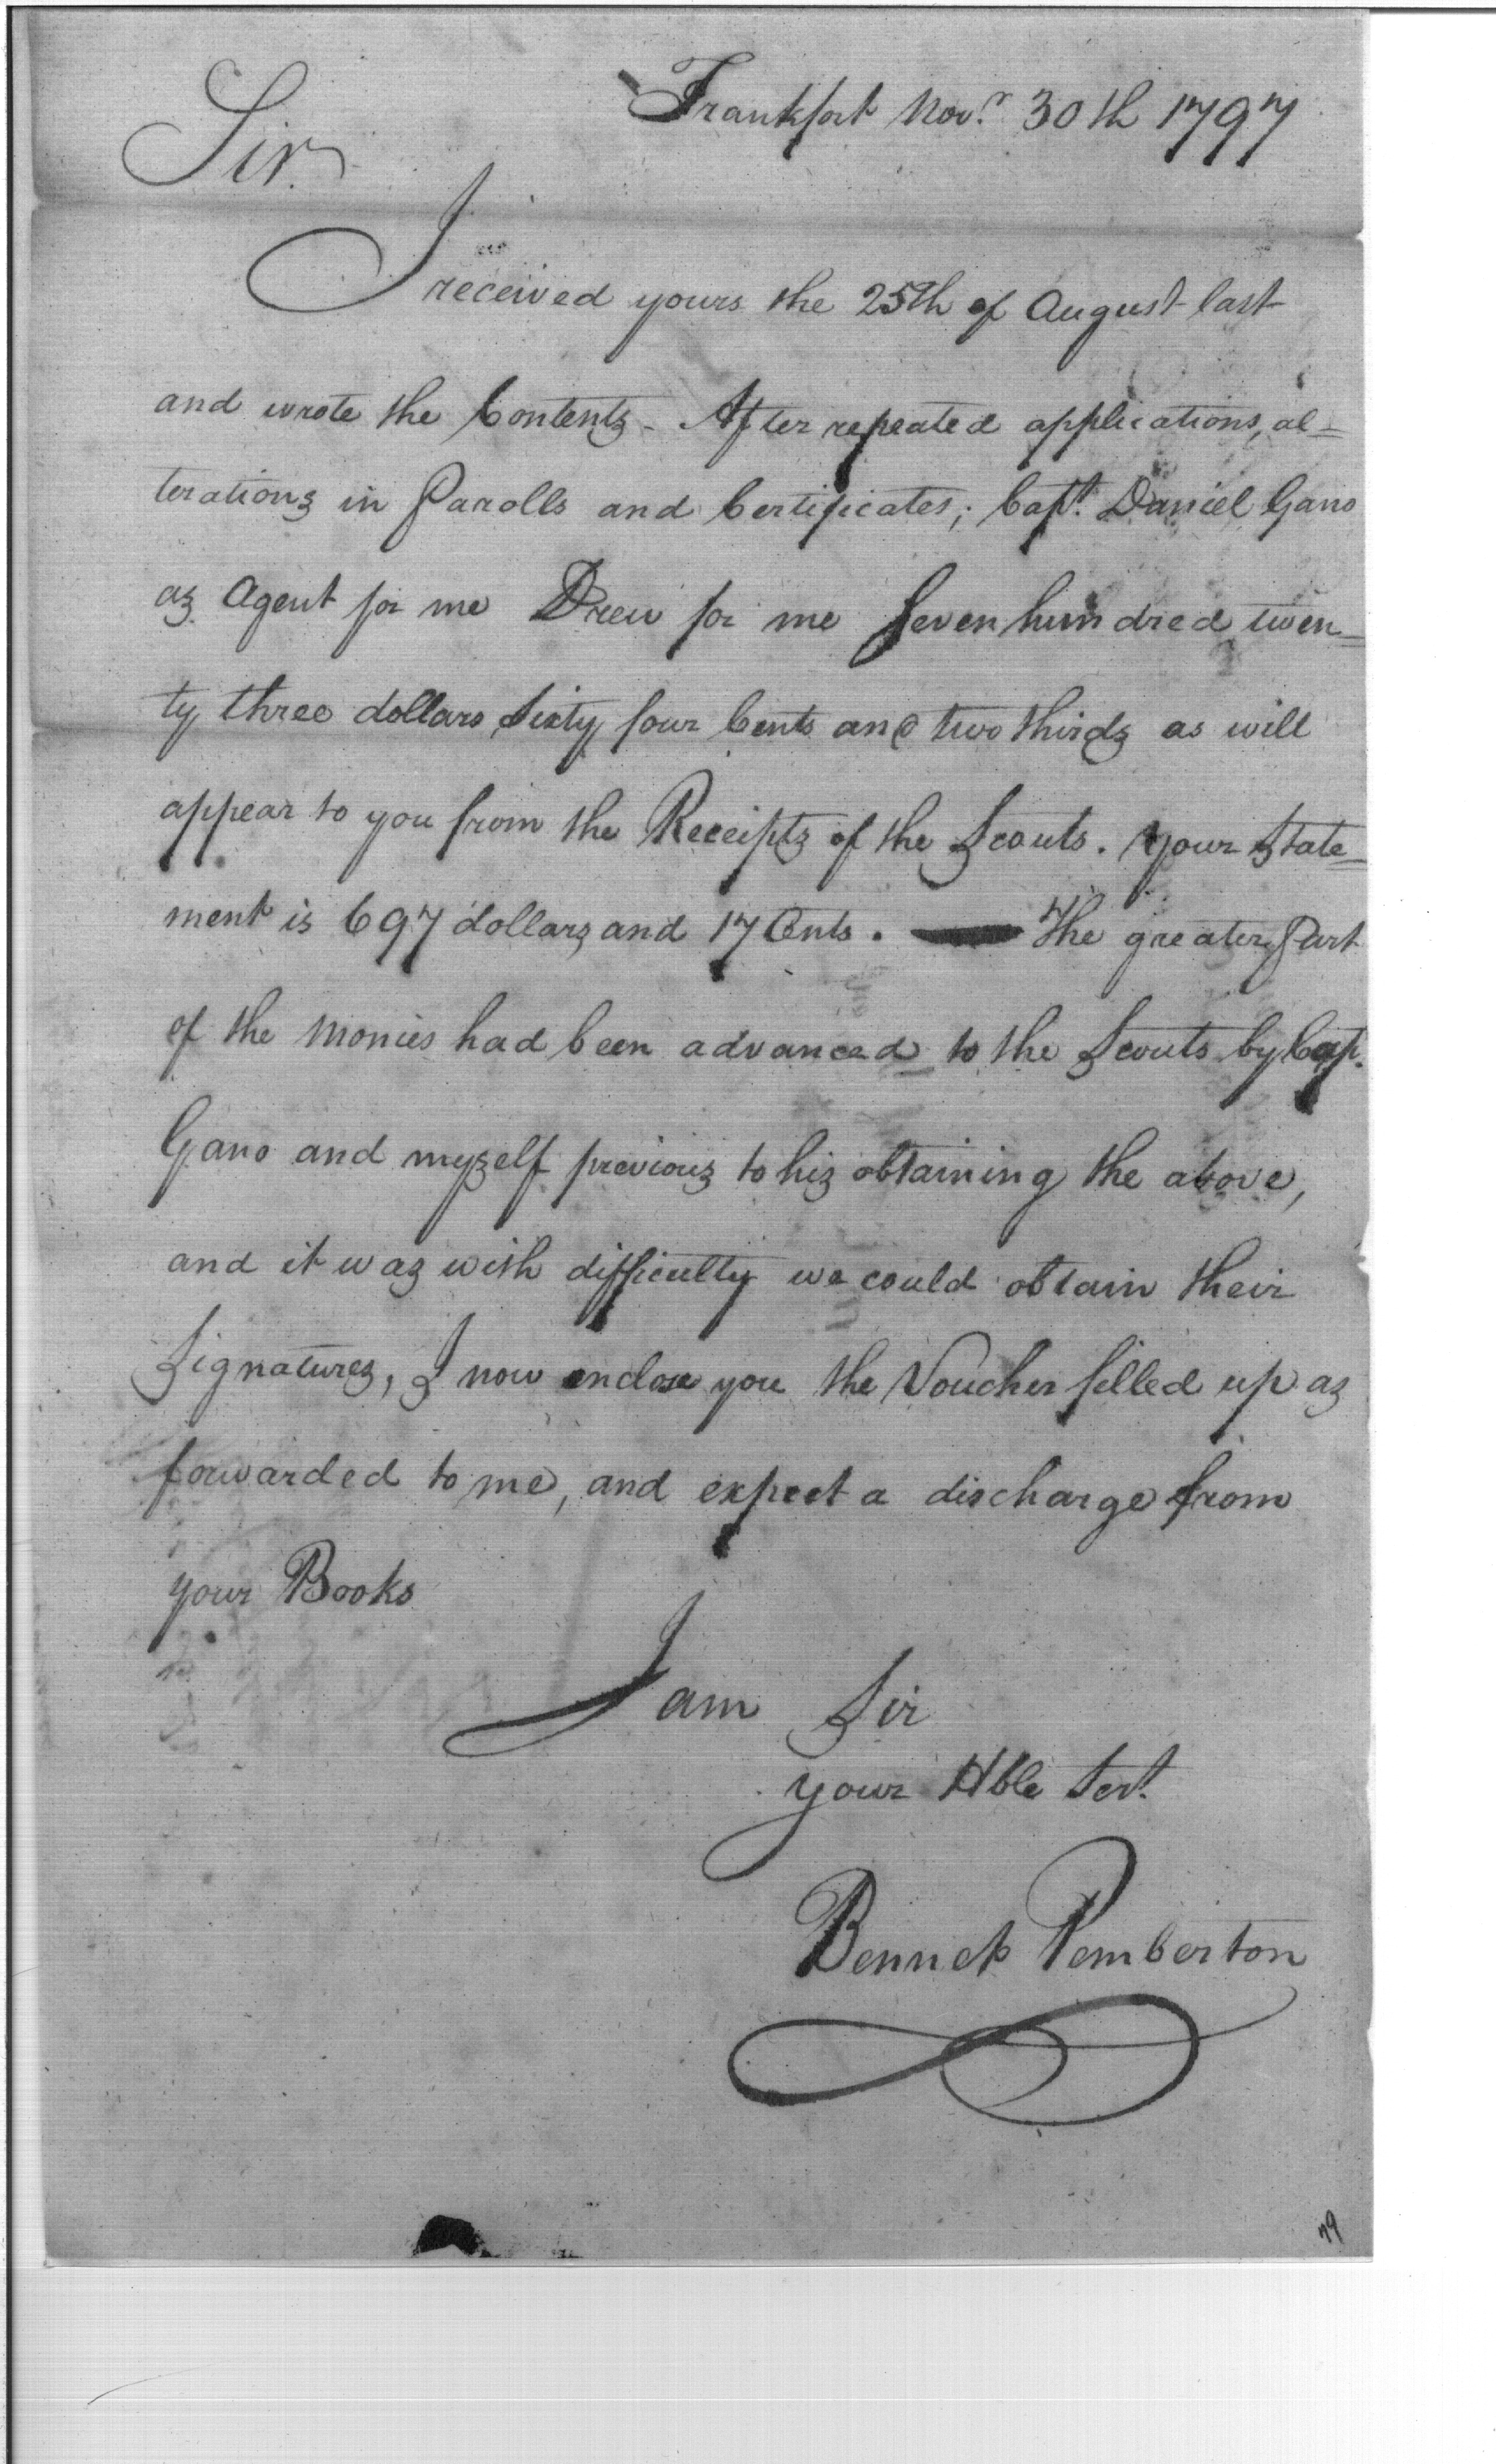 Frankfort Novr. 30th 1797
Sir.
I received yours the 25th of August last
and wrote the Contents - After repeated applications, al=
terations in Parolls and Certificates; Capt. Daniel Gano
as Agent for me Drew for me Seven hundred twen=
ty three dollars Sixty four Cents and two thirds as will
appear to you from the Receipts of the Scouts. Your State=
ment is 697 dollars and 17 Cents. The greater Part
of the Monies had been advanced to the Scouts by Cap.
Gano and myself previous to his obtaining the above,
and it was with difficulty we could obtain their
Signatures, I now enclose you the Voucher filled up as
forwarded to me, and expect a discharge from
your Books
I am Sir
your Hble Servt.
Bennet Pemberton
79